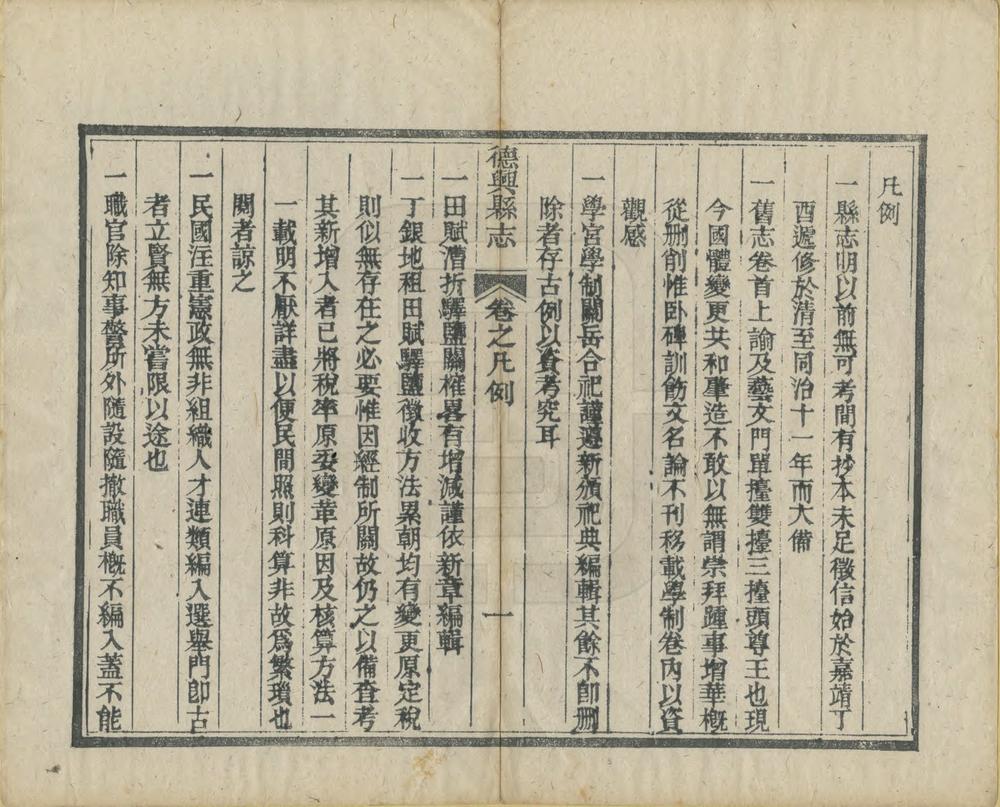 凡例
一縣志明以前無可考間有抄本未足徵信始於嘉靖丁
酉遞修於清至同治十一年而大備
一舊志卷首上諭及藝文門單擡雙擡三擡頭尊王也現
今國體變更共和肇造不敢以無謂崇拜踵事增華槪
從删削惟卧碑訓飭文名論不刊移載學制卷內以資
觀感
一學宮學制關岳合祀謹遵新頒祀典編輯其餘不卽删
除者存古例以資考究耳
德興縣志 卷之凡例 一
一田賦漕折驛鹽關榷畧有增減謹依新章編輯
一丁銀地租田賦驛鹽徵收方法累朝均有變更原定稅
則似無存在之必要惟因經制所關故仍之以備查考
其新增入者已將稅率原委變革原因及核算方法一
一載明不厭詳盡以便民間照則科算非故爲繁瑣也
閱者諒之
一民國注重憲政無非組織人才連類編入選舉門卽古
者立賢無方未嘗限以途也
一職官除知事警所外隨設隨撤職員槪不編入蓋不能